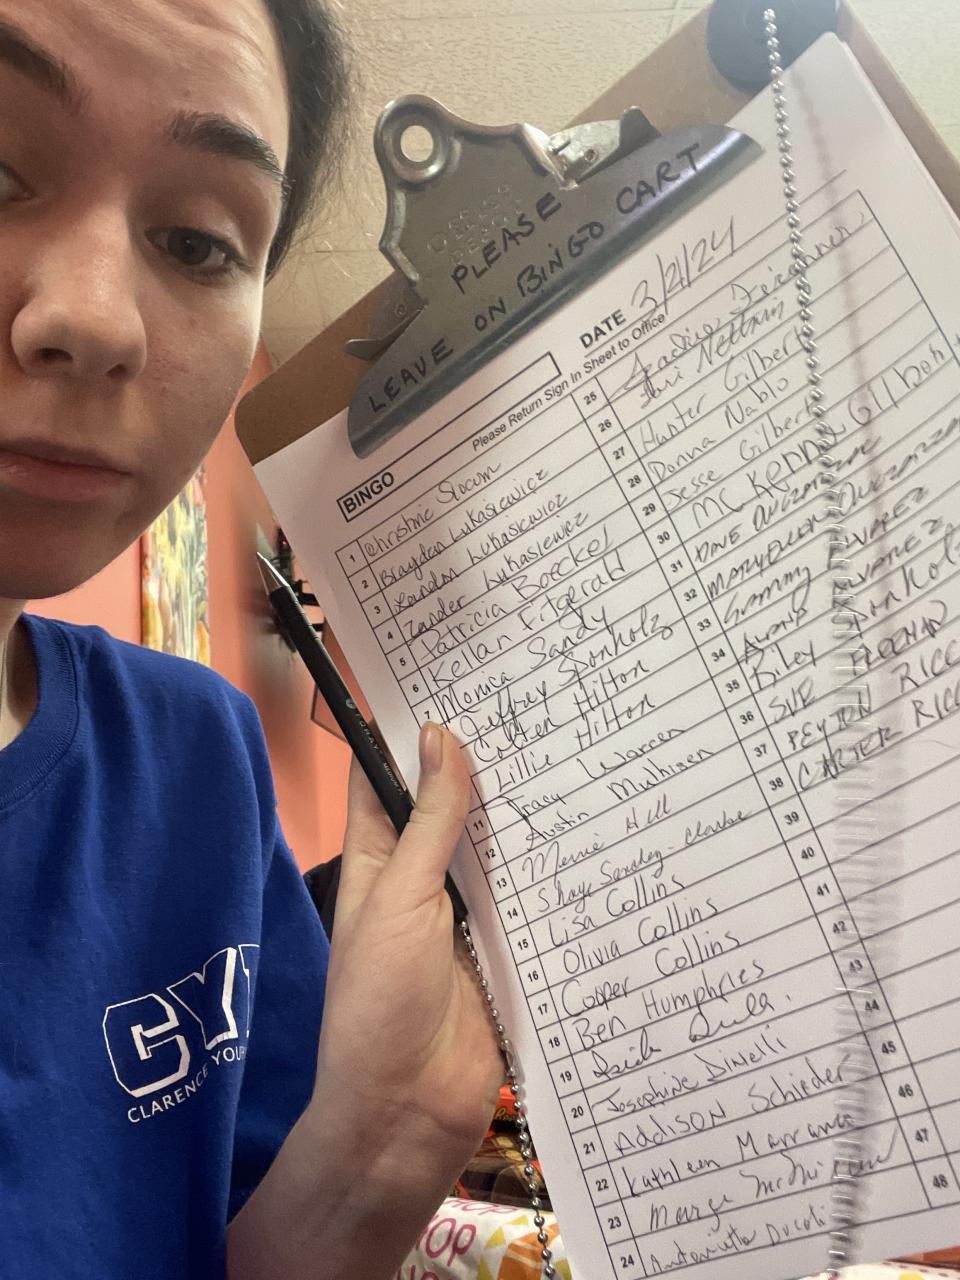 PLEASE
LEAVE ON BINGO CART
BINGO
DATE 3/21/24
Please Return Sign In Sheet to Office
1 Christine Slocum
2 Brayden Lukasiewicz
3 Landon Lukasiewicz
4 Zander Lukasiewicz
5 Patricia Boeckel
6 Kellan Fitzgerald
7 Monica Sandy
Jeffrey Sonholz
Colten Hilton
Lillie Hilton
11 Tracy Warren
12 Austin Muhisen
13 Merrie Hill
14 Shaye Sanchez-Clarke
15 Lisa Collins
16 Olivia Collins
17 Cooper Collins
18 Ben Humphries
19
20 Josephine DiNelli
21 ADDISON Schieder
22 Kathleen Marrano
23 Marge
24 Antoinette Ducoli
25
26
27 Hunter Gilbert
28 Donna Nablo
29 Jesse Gilbert
30 McKenna Gilbert
31 DAVE
32 MARYELLEN
33 Sammy ALVAREZ
34 ALVAREZ
35 Riley Sonholz
36 SUE HODMAN
37 PEYTON RICC
38 CARTER RICC
39
40
41
42
43
44
45
46
47
48
CY
CLARENCE YOU